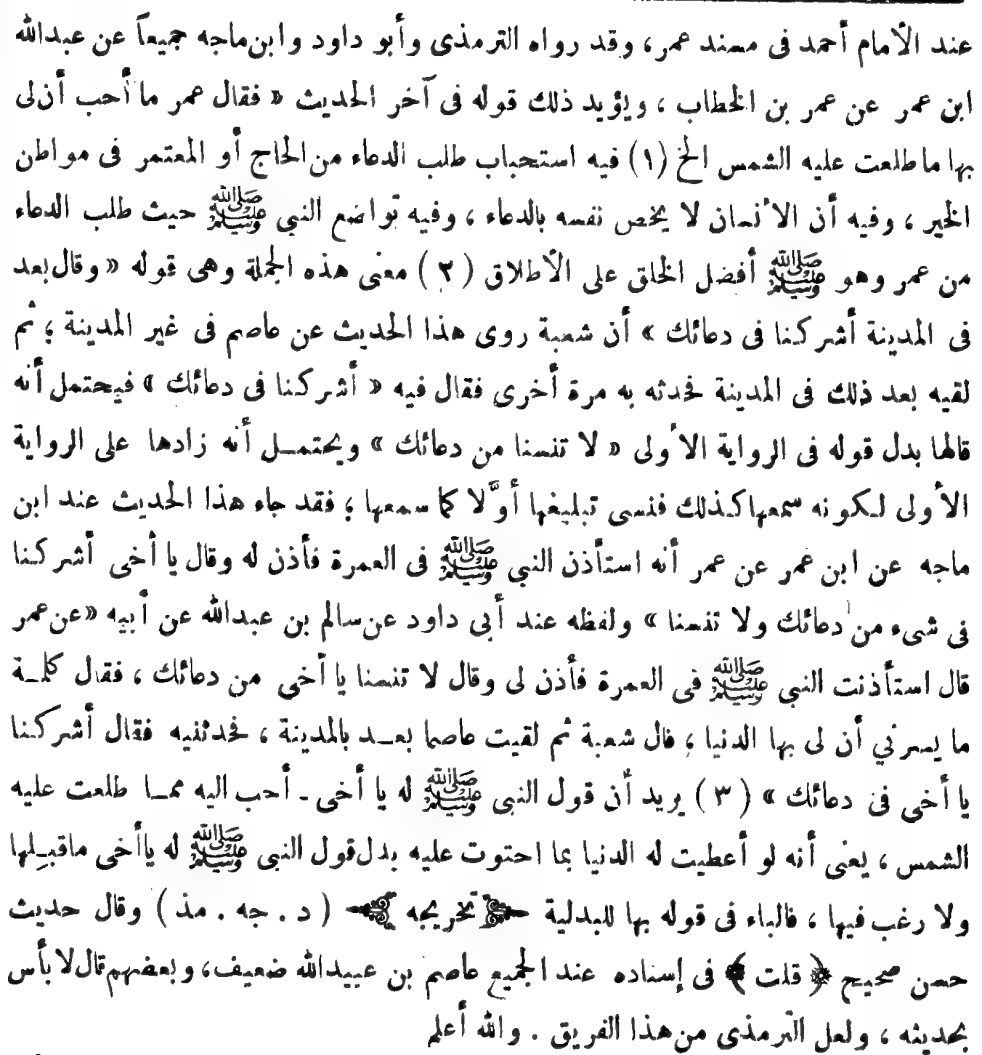 عند الأمام أحمد فى مسند عمر، وقد رواه الترمذى وأبو داود وابن ماجه جميعاً عن عبدالله
ابن عمر عن عمر بن الخطاب ، ويؤيد ذلك قوله فى آخر الحديث « فقال عمر ما أحب أن لى
بها ما طلعت عليه الشمس الخ (١) فيه استحباب طلب الدعاء من الحاج أو المعتمر فى مواطن
الخير ، وفيه أن الأنسان لا يخص نفسه بالدعاء ، وفيه تواضع النبى ﷺ حيث طلب الدعاء
من عمر وهو ﷺ أفضل الخلق على الأطلاق (٢) معنى هذه الجملة وهى قوله « وقال بعد
فى المدينة أشركنا فى دعائك » أن شعبة روى هذا الحديث عن عاصم فى غير المدينة ؛ ثم
لقيه بعد ذلك فى المدينة فحدثه به مرة أخرى فقال فيه « أشركنا فى دعائك » فيحتمل أنه
قالها بدل قوله فى الرواية الأولى « لا تنسنا من دعائك » ويحتمــل أنه زادها على الرواية
الأولى لـكونه سمعها كـذلك فنسى تبليغها أوَّلا كما سمعها ؛ فقد جاء هذا الحديث عند ابن
ماجه عن ابن عمر عن عمر أنه استأذن النبي ﷺ فى العمرة فأذن له وقال يا أخى أشركنا
فى شىء من دعائك ولا تنسنا » ولفظه عند أبى داود عن سالم بن عبدالله عن أبيه « عن عمر
قال استأذنت النبي ﷺ فى العمرة فأذن لى وقال لا تنسنا يا أخى من دعائك ، فقال كلمـة
ما يسرني أن لى بها الدنيا ؛ قال شعبة ثم لقيت عاصما بعــد بالمدينة ، فحدثنيه فقال أشركنا
يا أخى فى دعائك » (٣) يريد أن قول النبى ﷺ له يا أخى ـ أحب اليه ممـا طلعت عليه
الشمس ، يعنى أنه لو أعطيت له الدنيا بما احتوت عليه بدل قول النبى ﷺ له يا أخى ما قبـلها
ولا رغب فيها ، فالباء فى قوله بها للبدلية تخريجه ( د . جه . مذ ) وقال حديث
حسن صحيح ﴿ قلت ﴾ فى إسناده عند الجميع عاصم بن عبيدالله ضعيف، وبعضهم قال لا بأس
بحديثه ، ولعل الترمذى من هذا الفريق . والله أعلم